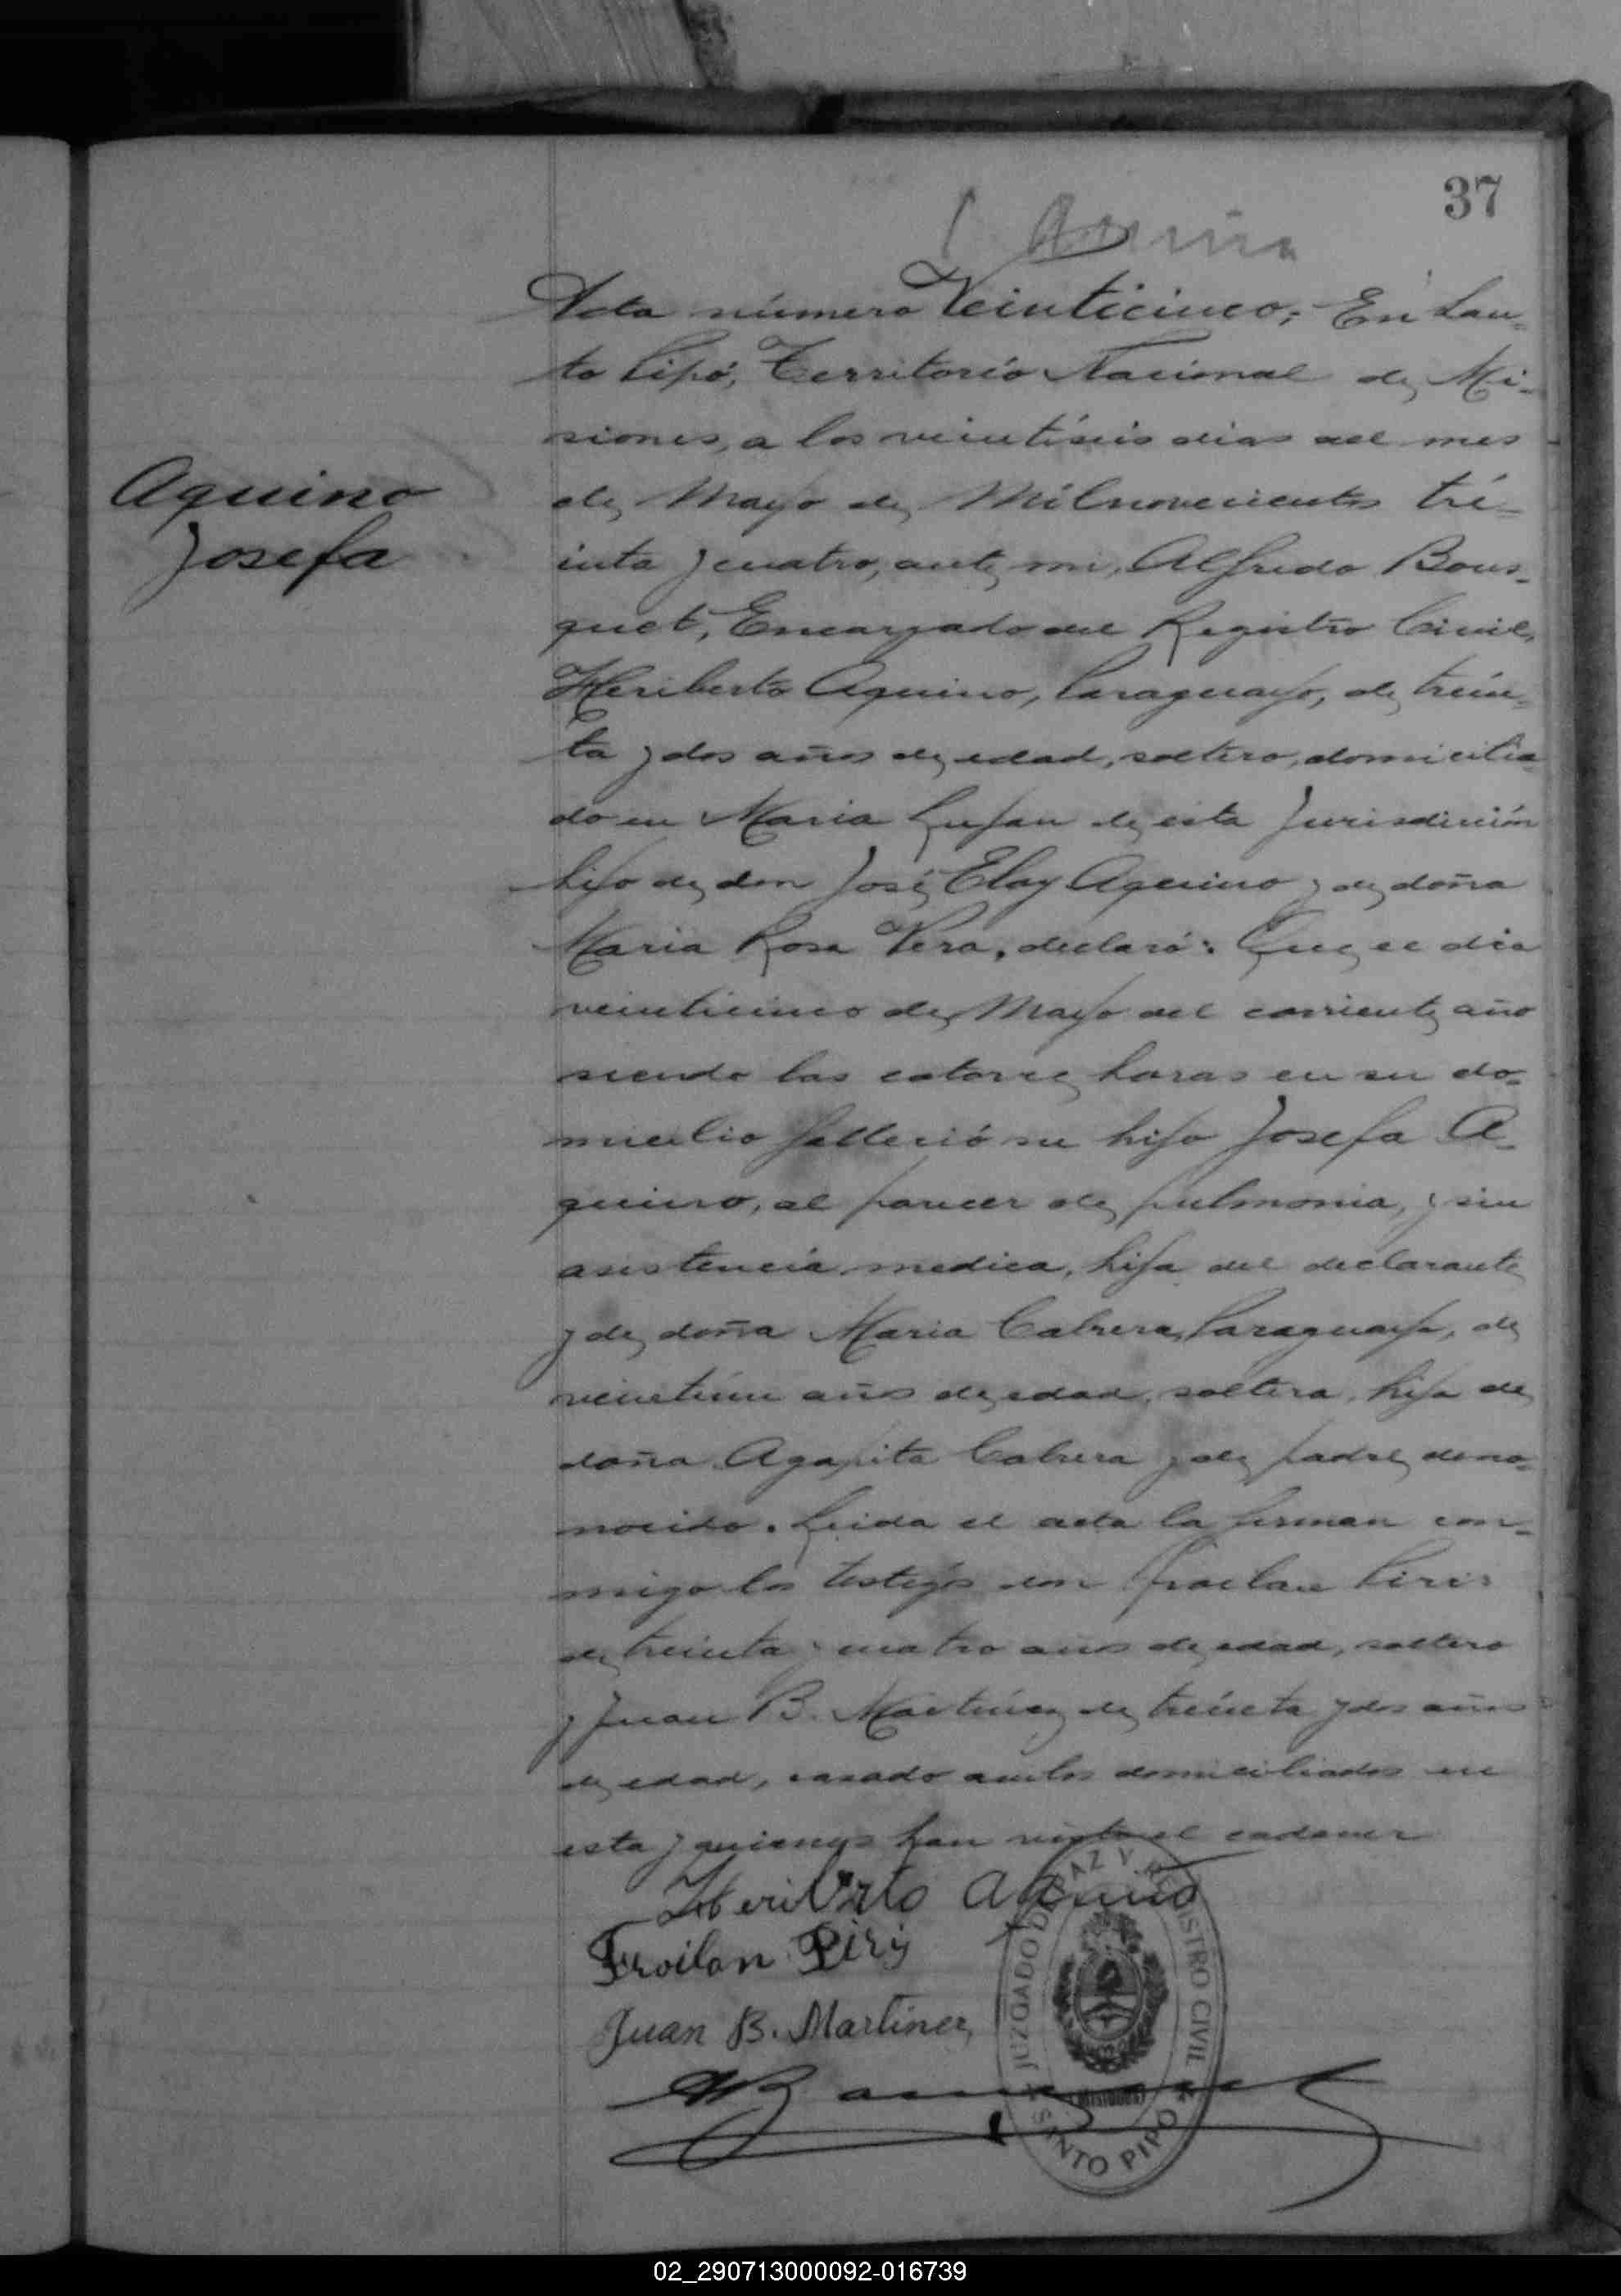 37
Aquino
Josefa
Acta número Veinticinco; En San-
to Pipó, Territorio Nacional de Mi-
siones, a los veintiseis dias del mes
de Mayo de Milnovecientos tre-
inta y cuatro, ante mi, Alfredo Bous-
quet, Encargado del Registro Civil,
Heriberto Aquino, Paraguayo, de trein-
ta y dos años de edad, soltero, domicilia-
do en Maria Lujan de esta Jurisdición
hijo de don José Eloy Aquino y de doña
Maria Rosa Vera, declaró: Que el dia
veinticinco de Mayo del corriente año
siendo las catorce horas en su do-
micilio falleció su hijo Josefa A-
quino, al parecer de pulmonia, y sin
asistencia medica, hija del declarante
y de doña Maria Cabrera, Paraguaya, de
veintiun años de edad, soltera, hija de
doña Agapita Cabrera y de padre
nocido. Leida el acta la firman con-
migo los testigos don Froilan Piris
de treinta y cuatro años de edad, soltero
y Juan B. Martinez de treinta y dos años
de edad, casado ambos domiciliados en
esta y quienes han visto el cadaver
Heriberto Aquino
Froilan Piris
Juan B. Martinez
JUZGADO DE PAZ Y REGISTRO CIVIL
MISIONES
SANTO PIPO
02_290713000092-016739